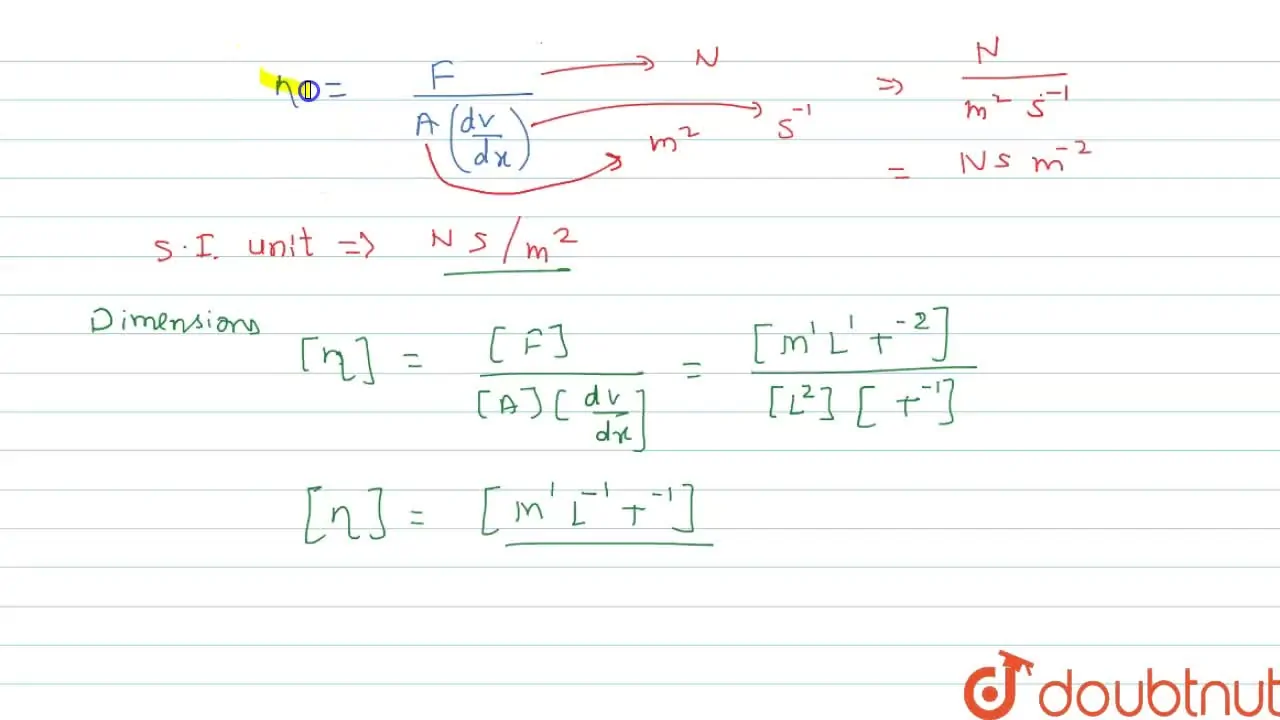 η = F / A (dv/dx) → N ⇒ N / m² s⁻¹
m² s⁻¹
= N s m⁻²
S.I. unit ⇒ N S / m²
Dimensions
[η] = [F] / [A] [dv/dx] = [M¹ L¹ T⁻²] / [L²] [T⁻¹]
[η] = [M¹ L⁻¹ T⁻¹]
doubtnut